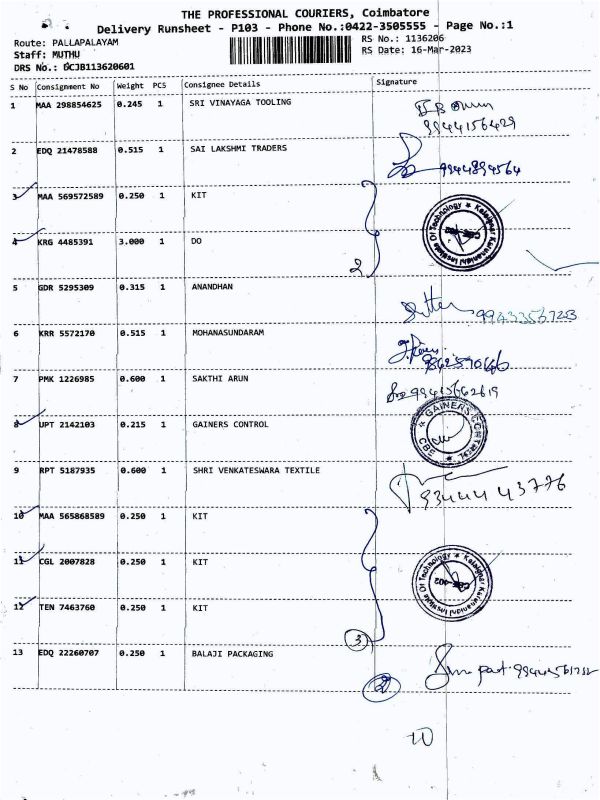 THE PROFESSIONAL COURIERS, Coimbatore
Delivery Runsheet - P103 - Phone No.:0422-3505555 - Page No.:1
Route: PALLAPALAYAM RS No.: 1136206
Staff: MUTHU RS Date: 16-Mar-2023
DRS No.: BCJB113620601
S No Consignment No Weight PCS Consignee Details Signature
1 MAA 298854625 0.245 1 SRI VINAYAGA TOOLING
9944156429
2 EDQ 21478588 0.515 1 SAI LAKSHMI TRADERS
9944894564
3 MAA 569572589 0.250 1 KIT
Kalaignar Karunanidhi Institute Of Technology
4 KRG 4485391 3.000 1 DO
2
5 GDR 5295309 0.315 1 ANANDHAN
6 KRR 5572170 0.515 1 MOHANASUNDARAM
7 PMK 1226985 0.600 1 SAKTHI ARUN
8 UPT 2142103 0.215 1 GAINERS CONTROL
GAINERS CONTROL CBE
9 RPT 5187935 0.600 1 SHRI VENKATESWARA TEXTILE
9344443776
10 MAA 565868589 0.250 1 KIT
11 CGL 2007828 0.250 1 KIT
Kalaignar Karunanidhi Institute Of Technology
CBE-402
12 TEN 7463760 0.250 1 KIT
3
13 EDQ 22260707 0.250 1 BALAJI PACKAGING
10